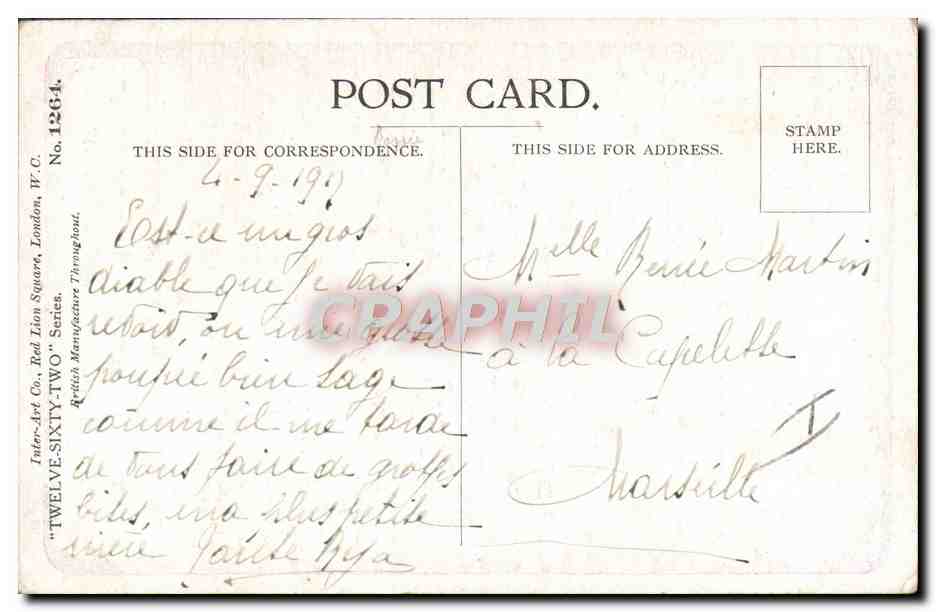 POST CARD.
THIS SIDE FOR CORRESPONDENCE.
THIS SIDE FOR ADDRESS.
STAMP
HERE.
Inter-Art Co., Red Lion Square, London, W.C.
"TWELVE-SIXTY-TWO" Series.
No. 1264.
British Manufacture Throughout.
4-9-191
Est-ce un gros
diable que je vais
revoir, ou une grosse
poupée bien sage
comme il me tarde
de vous faire de grosses
bises, ma plus petite
nièce Tante
Melle Renée Martin
à la Capelette
Marseille
T
CRAPHIL